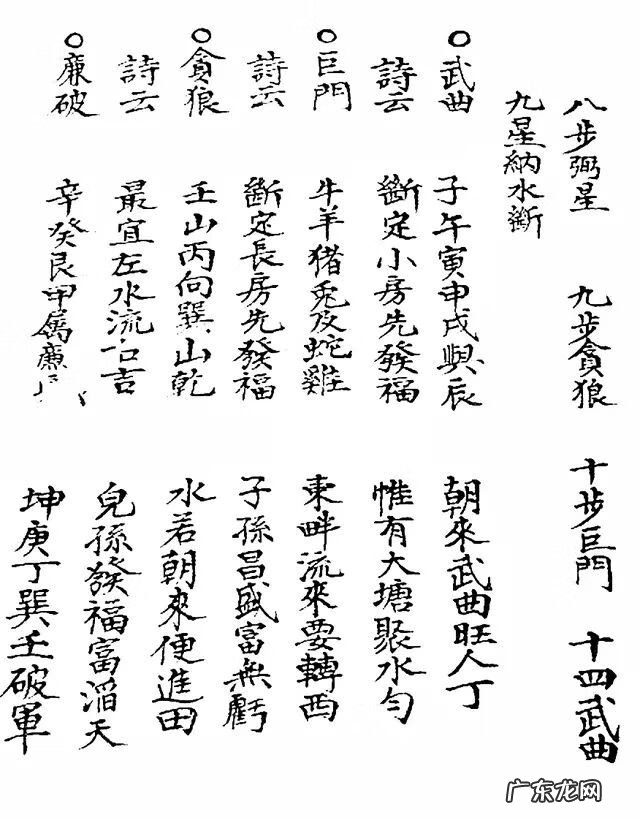 八步弼星　九步貪狼　十步巨門　十四武曲
九星納水斷
○武曲　子午寅申戌與辰　朝來武曲旺人丁
詩云　斷定小房先發福　惟有大塘聚水勻
○巨門　牛羊猪兎及蛇雞　東畔流來要轉西
詩云　斷定長房先發福　子孫昌盛富無虧
○貪狼　壬山丙向巽山乾　水若朝來便進田
詩云　最宜左水流右吉　兒孫發福富滔天
○廉破　辛癸艮甲属廉　坤庚丁巽壬破軍
广东龙网